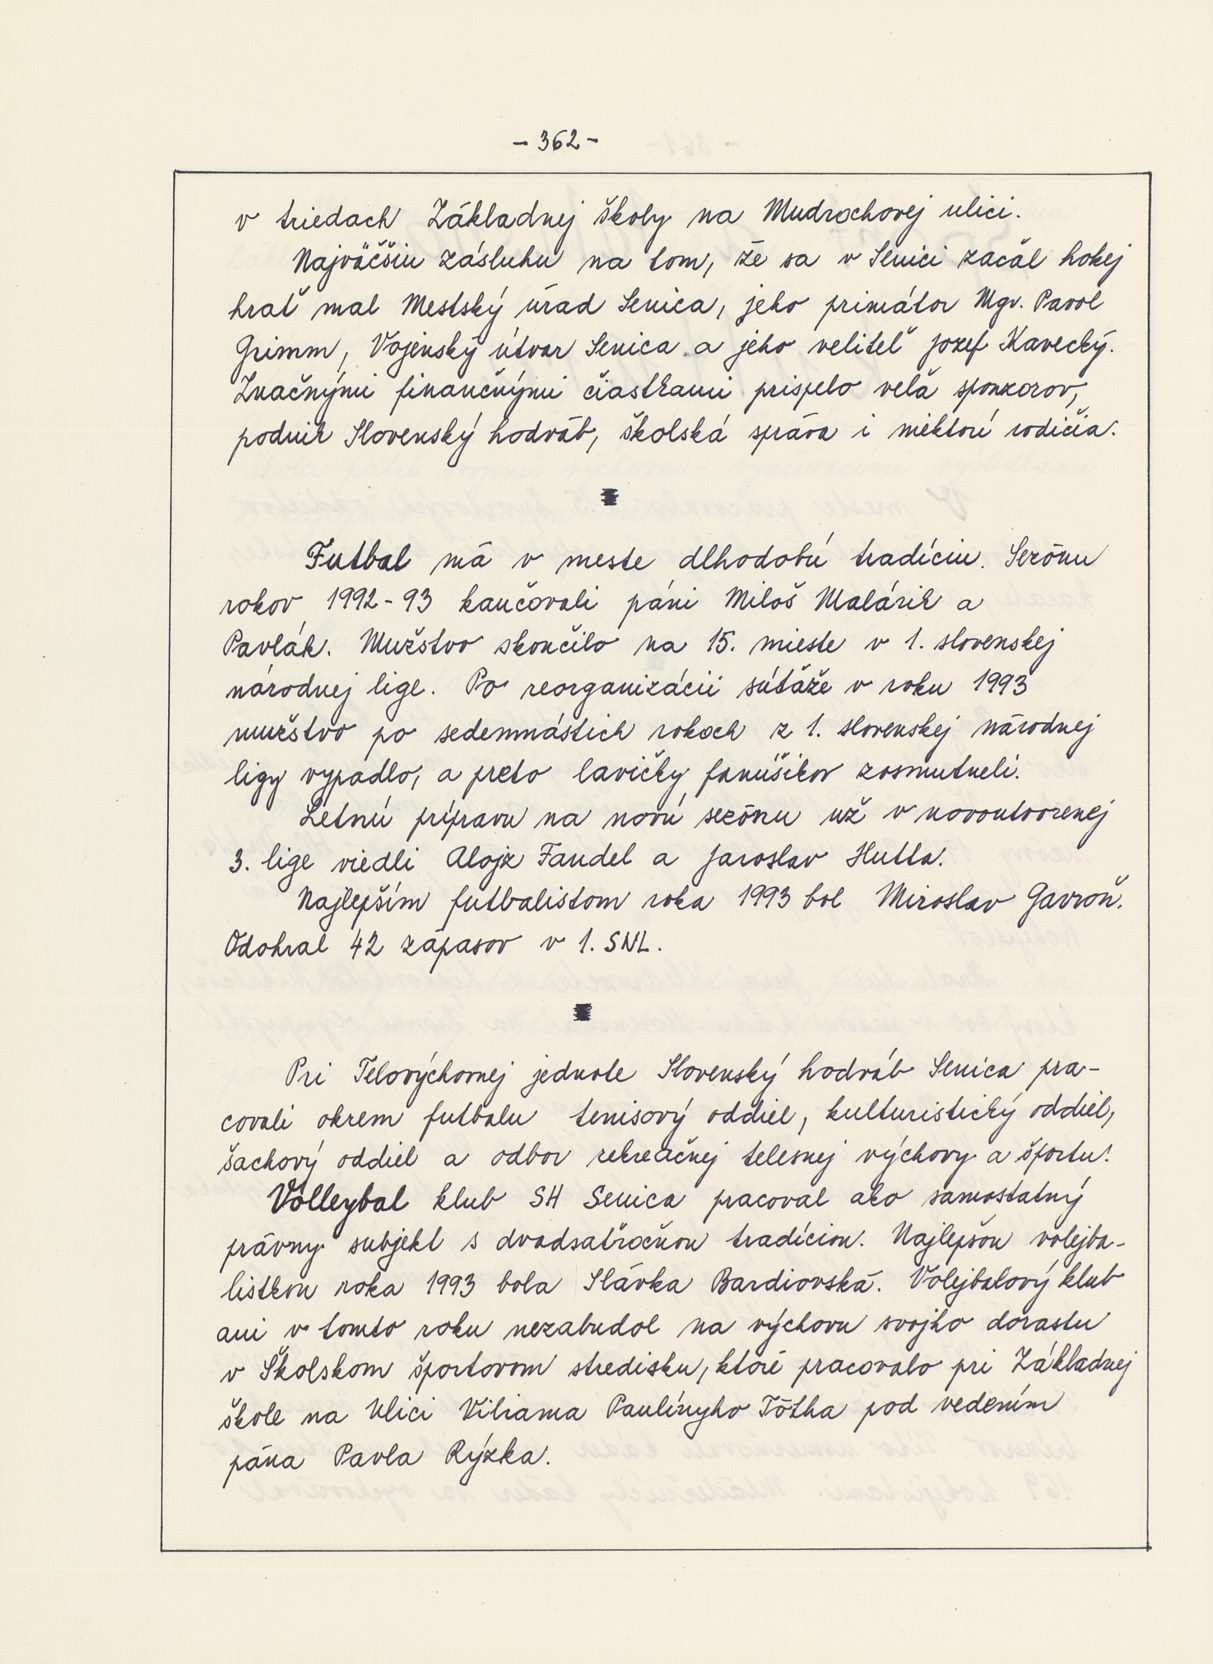 - 362 -
v triedach Základnej školy na Mudrochovej ulici.
Najväčšiu zásluhu na tom, že sa v Senici začal hokej
hrať mal Mestský úrad Senica, jeho primátor Mgr. Pavol
Grimm, Vojenský útvar Senica a jeho veliteľ Jozef Kavecký.
Značnými finančnými čiastkami prispelo veľa sponzorov,
podnik Slovenský hodváb, školská správa i niektorí rodičia.
Futbal má v meste dlhodobú tradíciu. Sezónu
rokov 1992-93 kaučovali páni Miloš Malárik a
Pavlák. Mužstvo skončilo na 15. mieste v 1. slovenskej
národnej lige. Po reorganizácii súťaže v roku 1993
mužstvo po sedemnástich rokoch z 1. slovenskej národnej
ligy vypadlo, a preto lavičky fanúšikov zosmutneli.
Letnú prípravu na novú sezónu už v novoutvorenej
3. lige viedli Alojz Fandel a Jaroslav Hutta.
Najlepším futbalistom roka 1993 bol Miroslav Gavroň.
Odohral 42 zápasov v 1. SNL.
Pri Telovýchovnej jednote Slovenský hodváb Senica pra-
covali okrem futbalu tenisový oddiel, kulturistický oddiel,
šachový oddiel a odbor rekreačnej telesnej výchovy a športu.
Volleybal klub SH Senica pracoval ako samostatný
právny subjekt s dvadsaťročnou tradíciou. Najlepšou volejba-
listkou roka 1993 bola Slávka Bardiovská. Volejbalový klub
ani v tomto roku nezabudol na výchovu svojho dorastu
v Školskom športovom stredisku, ktoré pracovalo pri Základnej
škole na Ulici Viliama Paulínyho Tótha pod vedením
pána Pavla Rýzka.